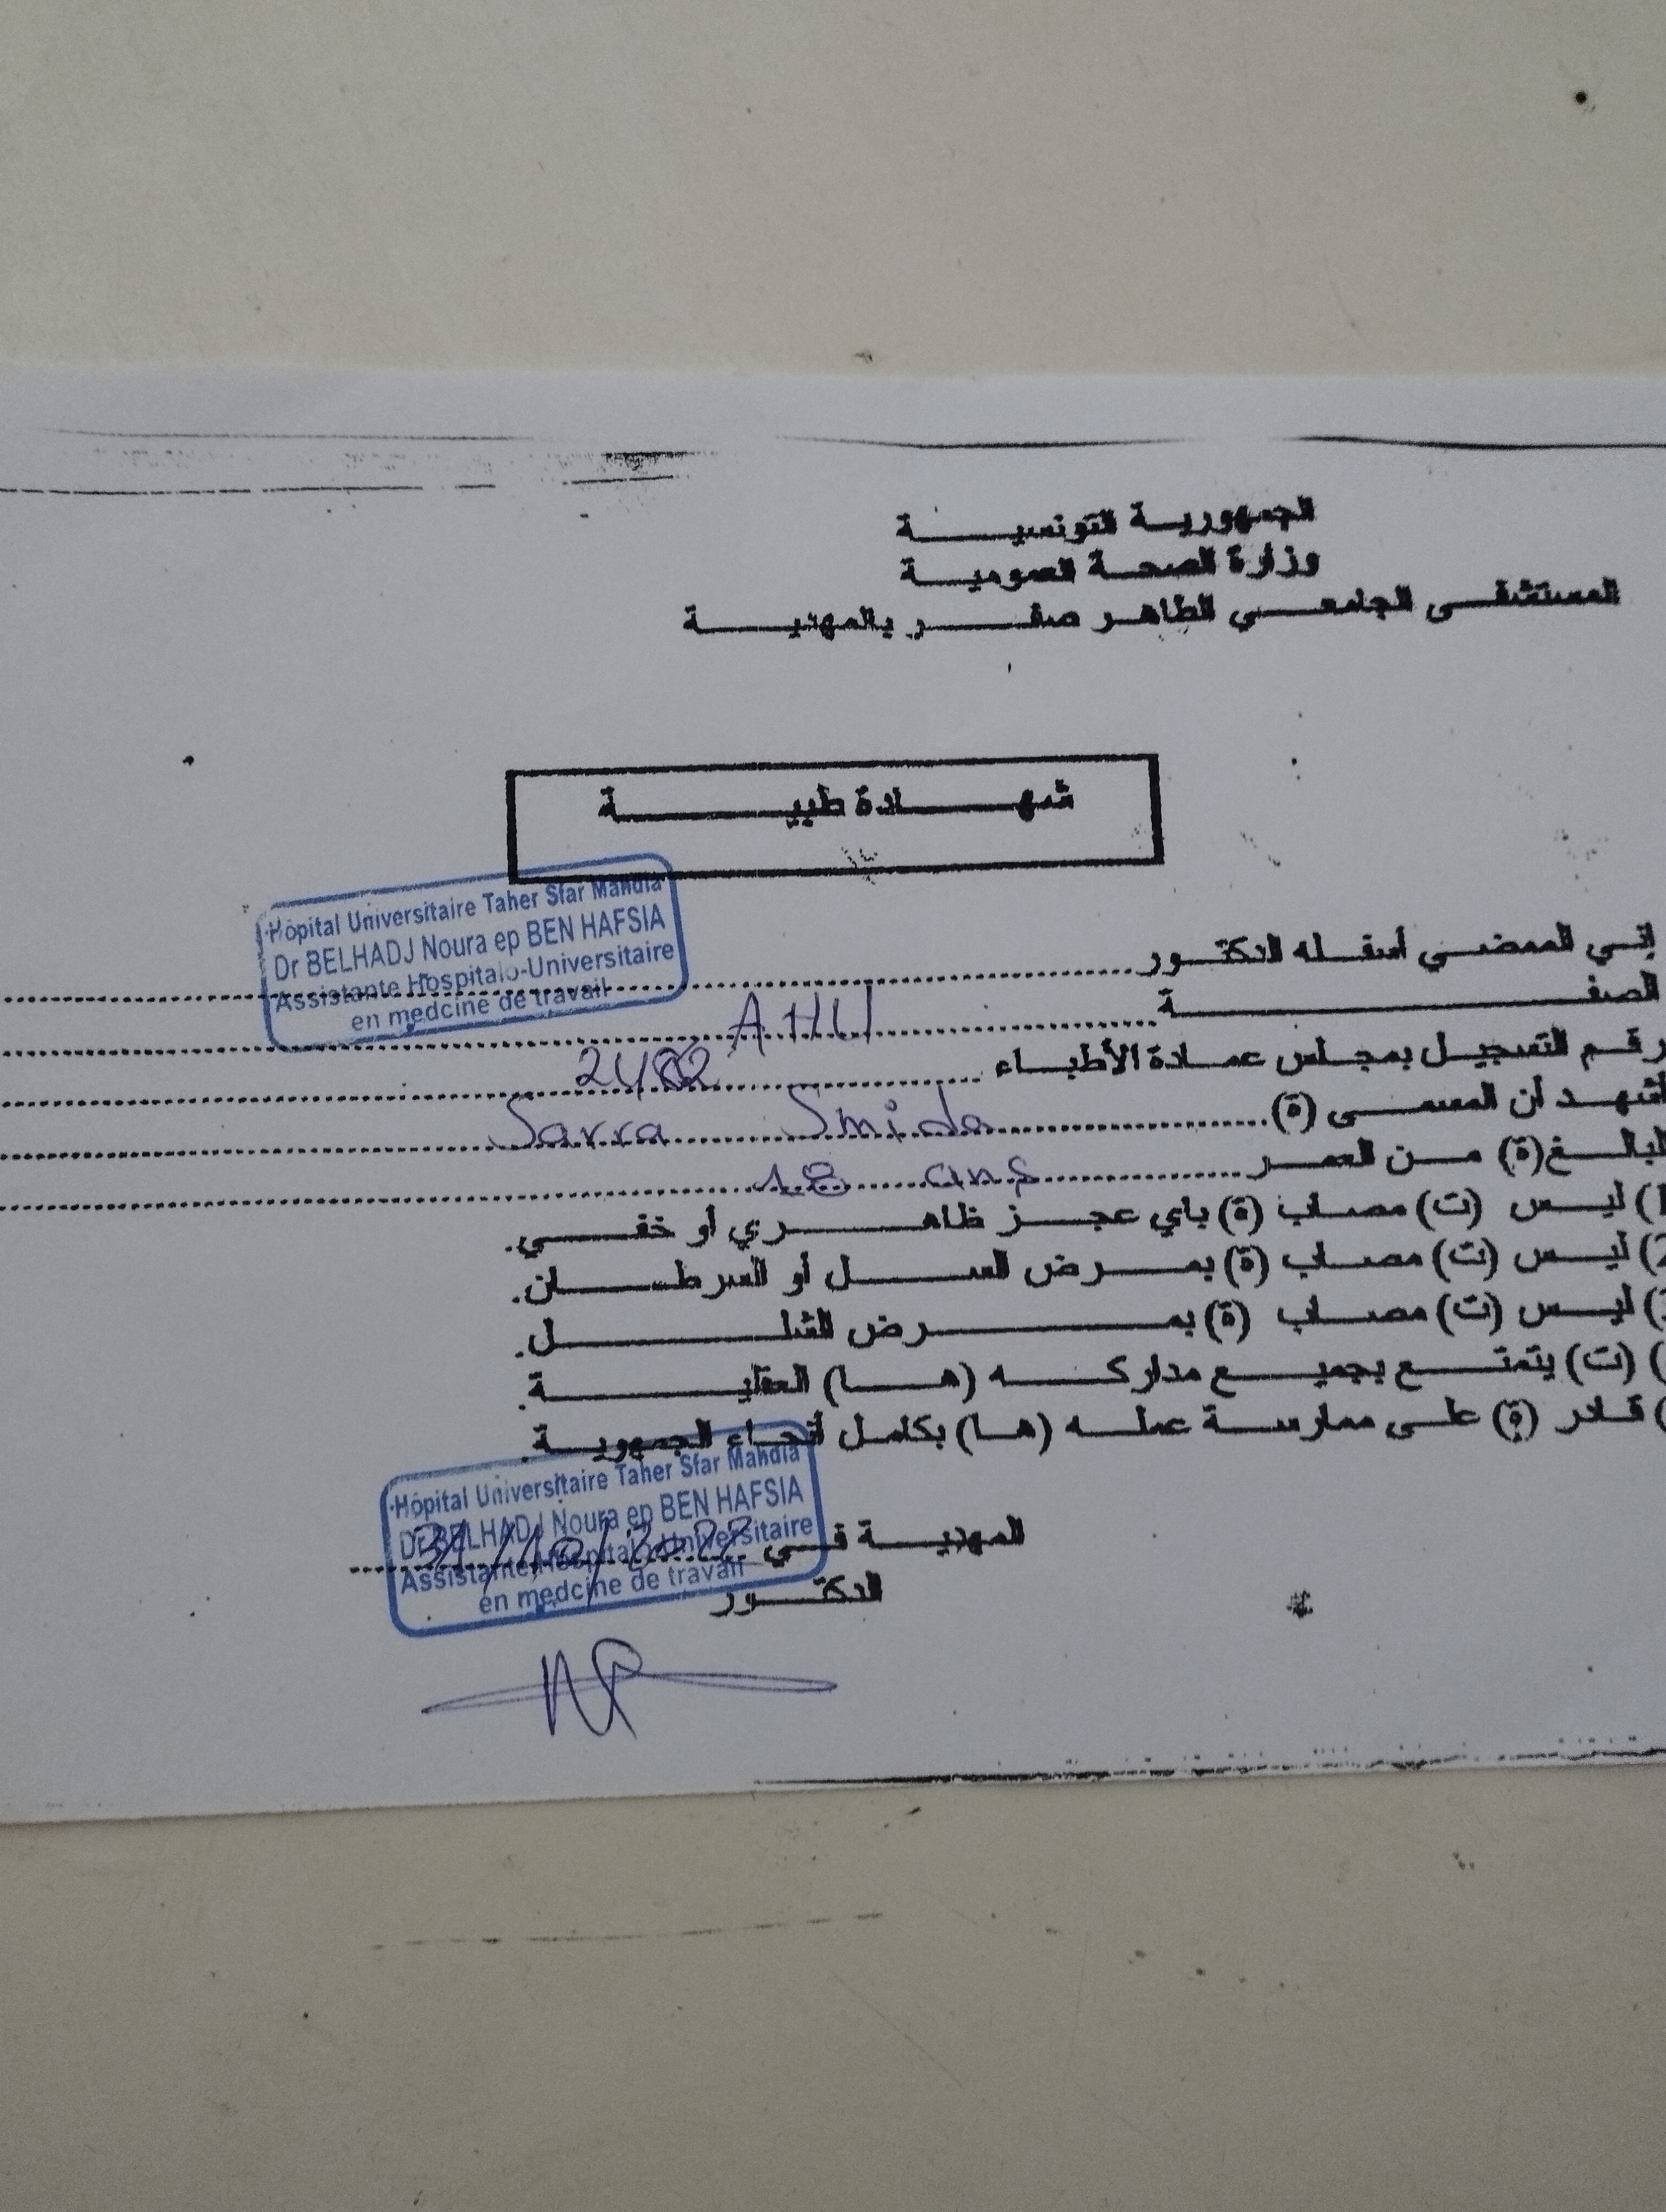 الجمهورية التونسية
وزارة الصحة العمومية
المستشفى الجامعي الطاهر صفر بالمهدية
شهادة طبية
Hôpital Universitaire Taher Sfar Mahdia
Dr BELHADJ Noura ep BEN HAFSIA
Assistante Hospitalo-Universitaire
en medcine de travail
إني الممضي أسفله الدكتور
الصفة AHU
رقم التسجيل بمجلس عمادة الأطباء
أشهد أن المسمى (ة) Sarra Smida
البالغ(ة) من العمر 18 ans
1) ليس (ت) مصاب (ة) بأي عجز ظاهري أو خفي.
2) ليس (ت) مصاب (ة) بمرض السل أو السرطان.
) ليس (ت) مصاب (ة) بمرض الشلل.
) (ت) يتمتع بجميع مداركه (ها) العقلية.
) قادر (ة) على ممارسة عمله (ها) بكامل أنحاء الجمهورية.
Hôpital Universitaire Taher Sfar Mahdia
Dr BELHADJ Noura ep BEN HAFSIA
Assistante Hospitalo-Universitaire
en medcine de travail
المهدية في 31/10/2022
الدكتور